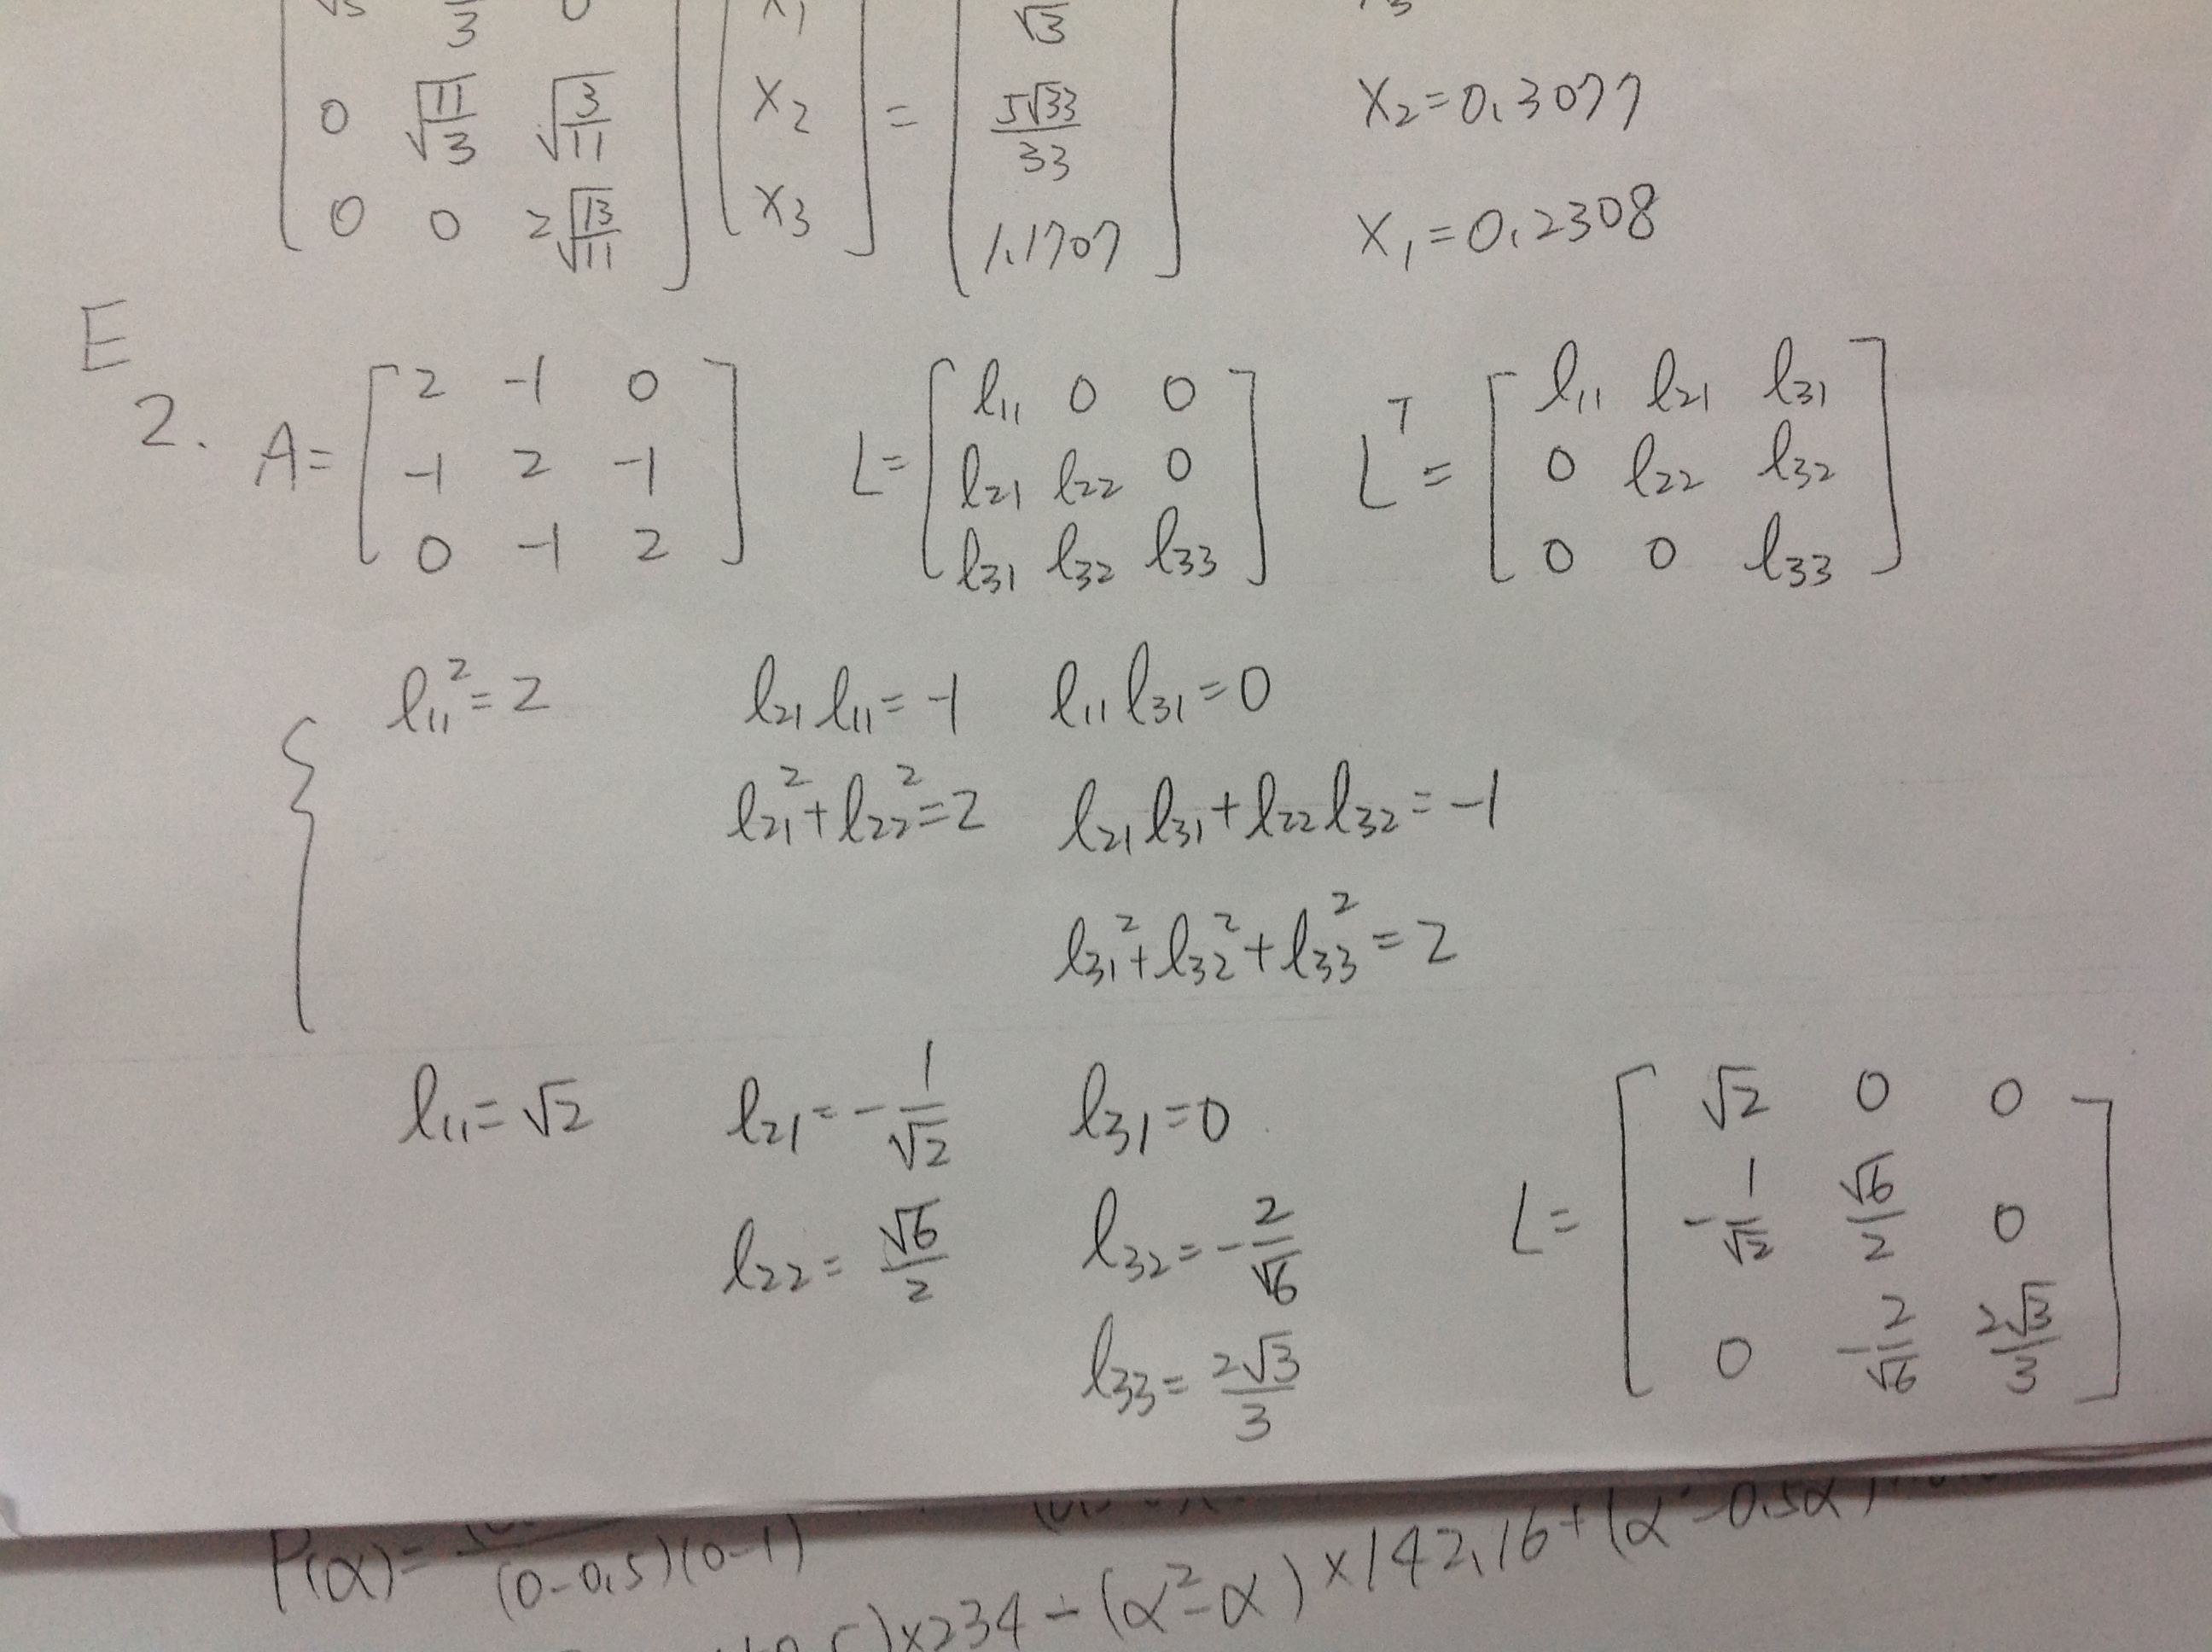 3 0 x₁ √3
0 √(11/3) √(3/11) x₂ = 5√33/33 x₂=0.3077
0 0 2√(13/11) x₃ 1.1707 x₁=0.2308
E
2. A= [2 -1 0; -1 2 -1; 0 -1 2] L= [l₁₁ 0 0; l₂₁ l₂₂ 0; l₃₁ l₃₂ l₃₃] Lᵀ= [l₁₁ l₂₁ l₃₁; 0 l₂₂ l₃₂; 0 0 l₃₃]
l₁₁²=2 l₂₁l₁₁=-1 l₁₁l₃₁=0
l₂₁²+l₂₂²=2 l₂₁l₃₁+l₂₂l₃₂=-1
l₃₁²+l₃₂²+l₃₃²=2
l₁₁=√2 l₂₁=-1/√2 l₃₁=0
l₂₂=√6/2 l₃₂=-2/√6
l₃₃=2√3/3
L= [√2 0 0; -1/√2 √6/2 0; 0 -2/√6 2√3/3]
P(α)= (0-0.5)(0-1)
×234-(α²-α)×142.16+(α²-0.5α)